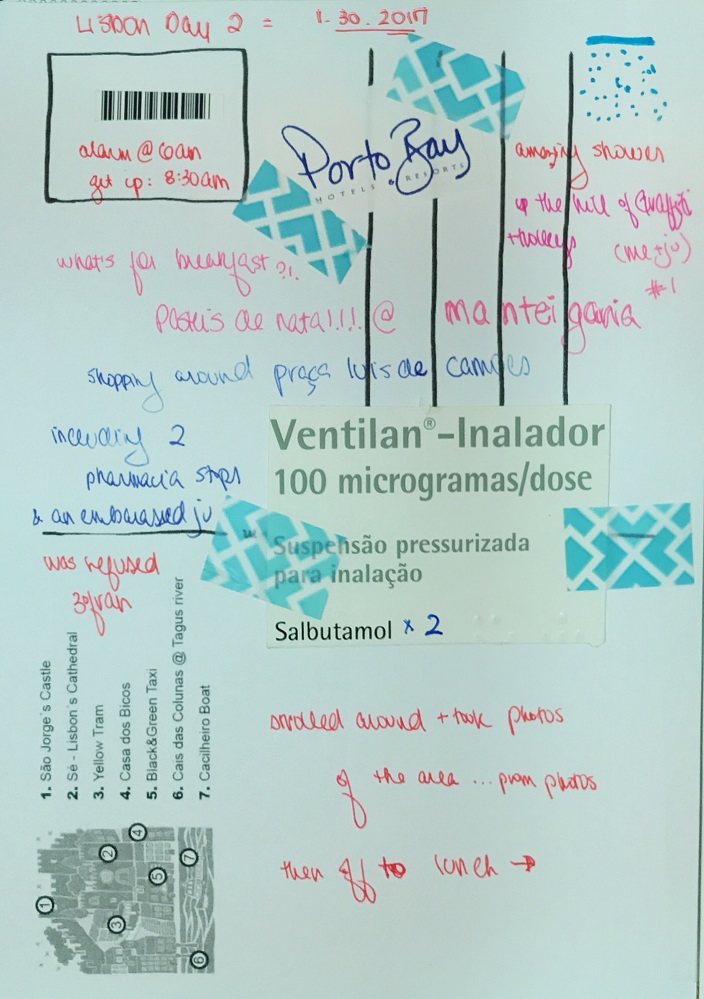 Lisbon Day 2 = 1.30.2017
alarm @ 6am
get up: 8:30am
Porto Bay
HOTELS & RESORTS
amazing shower
up the hill of graffiti
+ trolleys (me + ju)
#1
what's for breakfast?!.
Pasteis de nata!!!! @ manteigaria
shopping around praça luis de camões
including 2
pharmacia stops
& an embarassed ju
was refused
zofran
Ventilan®-Inalador
100 microgramas/dose
Suspensão pressurizada
para inalação
Salbutamol x 2
1. São Jorge´s Castle
2. Sé - Lisbon´s Cathedral
3. Yellow Tram
4. Casa dos Bicos
5. Black&Green Taxi
6. Cais das Colunas @ Tagus river
7. Cacilheiro Boat
1
2
3
4
5
6
7
strolled around + took photos
of the area ... prom photos
then off to lunch →